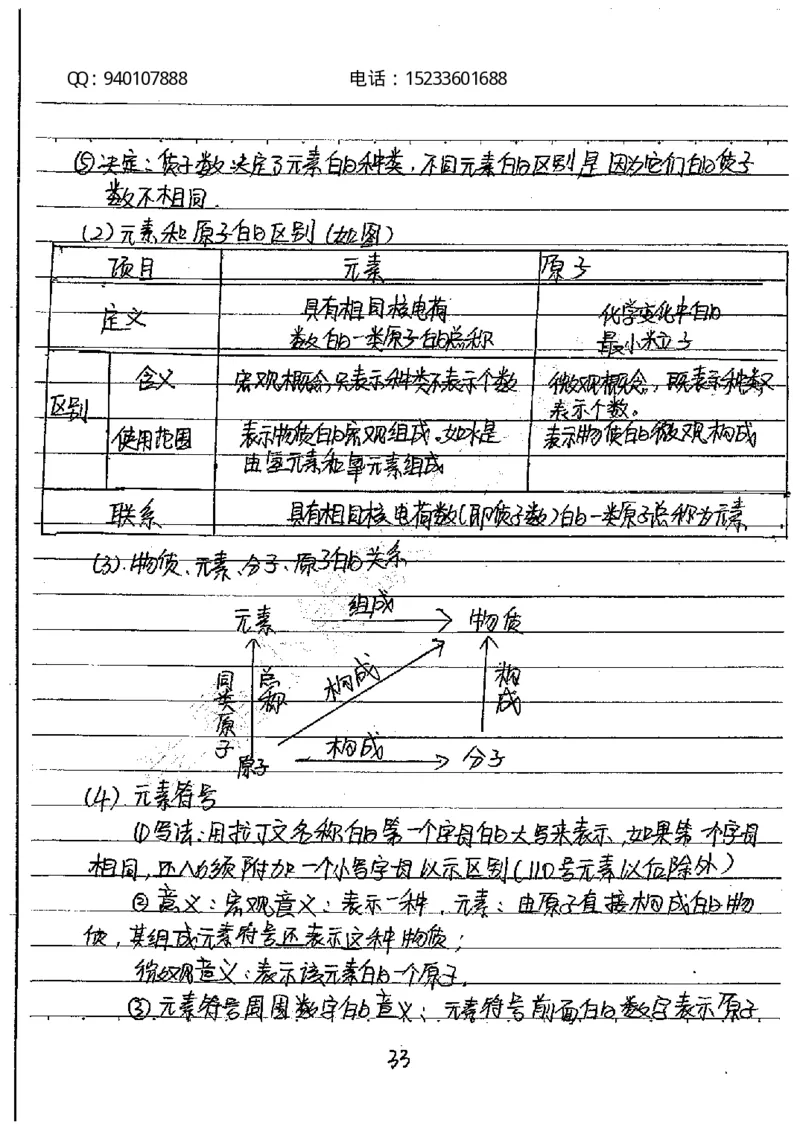 QQ：940107888 电话：15233601688
⑤决定：质子数决定了元素的种类，不同元素的区别是因为它们的质子
数不相同.
(2)元素和原子的区别(如图)
项目 元素 原子
定义 具有相同核电荷
数的一类原子的总称 化学变化中的
最小粒子
区别 含义 宏观概念,只表示种类不表示个数 微观概念，既表示种类又
表示个数。
使用范围 表示物质的宏观组成。如水是
由氢元素和氧元素组成 表示物质的微观构成
联系 具有相同核电荷数(即质子数)的一类原子总称为元素
(3).物质、元素、分子、原子的关系
元素 组成 物质
同类原子 总称 构成 构成
原子 构成 分子
(4) 元素符号
①写法:用拉丁文名称的第一个字母的大写来表示,如果第一个字母
相同,还必须附加一个小写字母以示区别(110号元素以后除外)
②意义：宏观意义：表示一种，元素：由原子直接构成的物
质，其组成元素符号还表示这种物质；
微观意义：表示该元素的一个原子.
③元素符号周围数字的意义：元素符号前面的数字表示原子
33